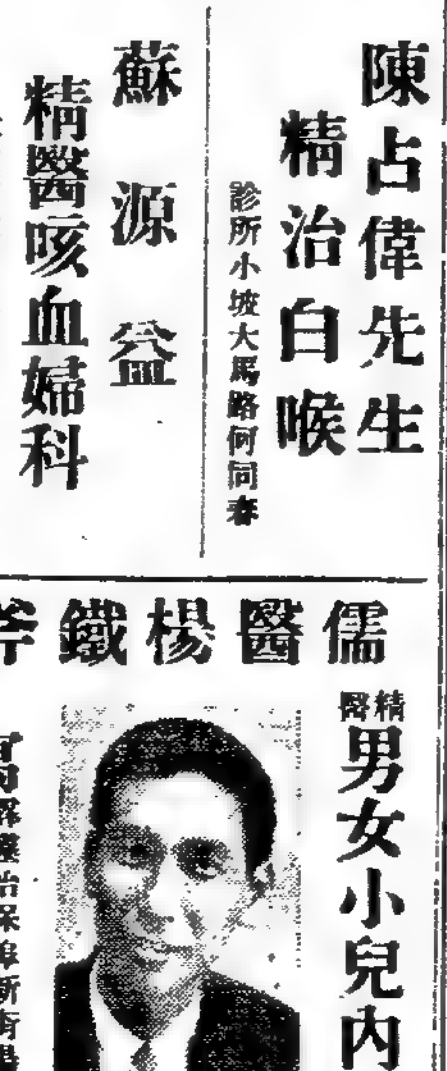 陳占偉先生
精治白喉
診所小坡大馬路何同春
蘇源益
精醫咳血婦科
儒醫楊鐵
精醫
男女小兒內